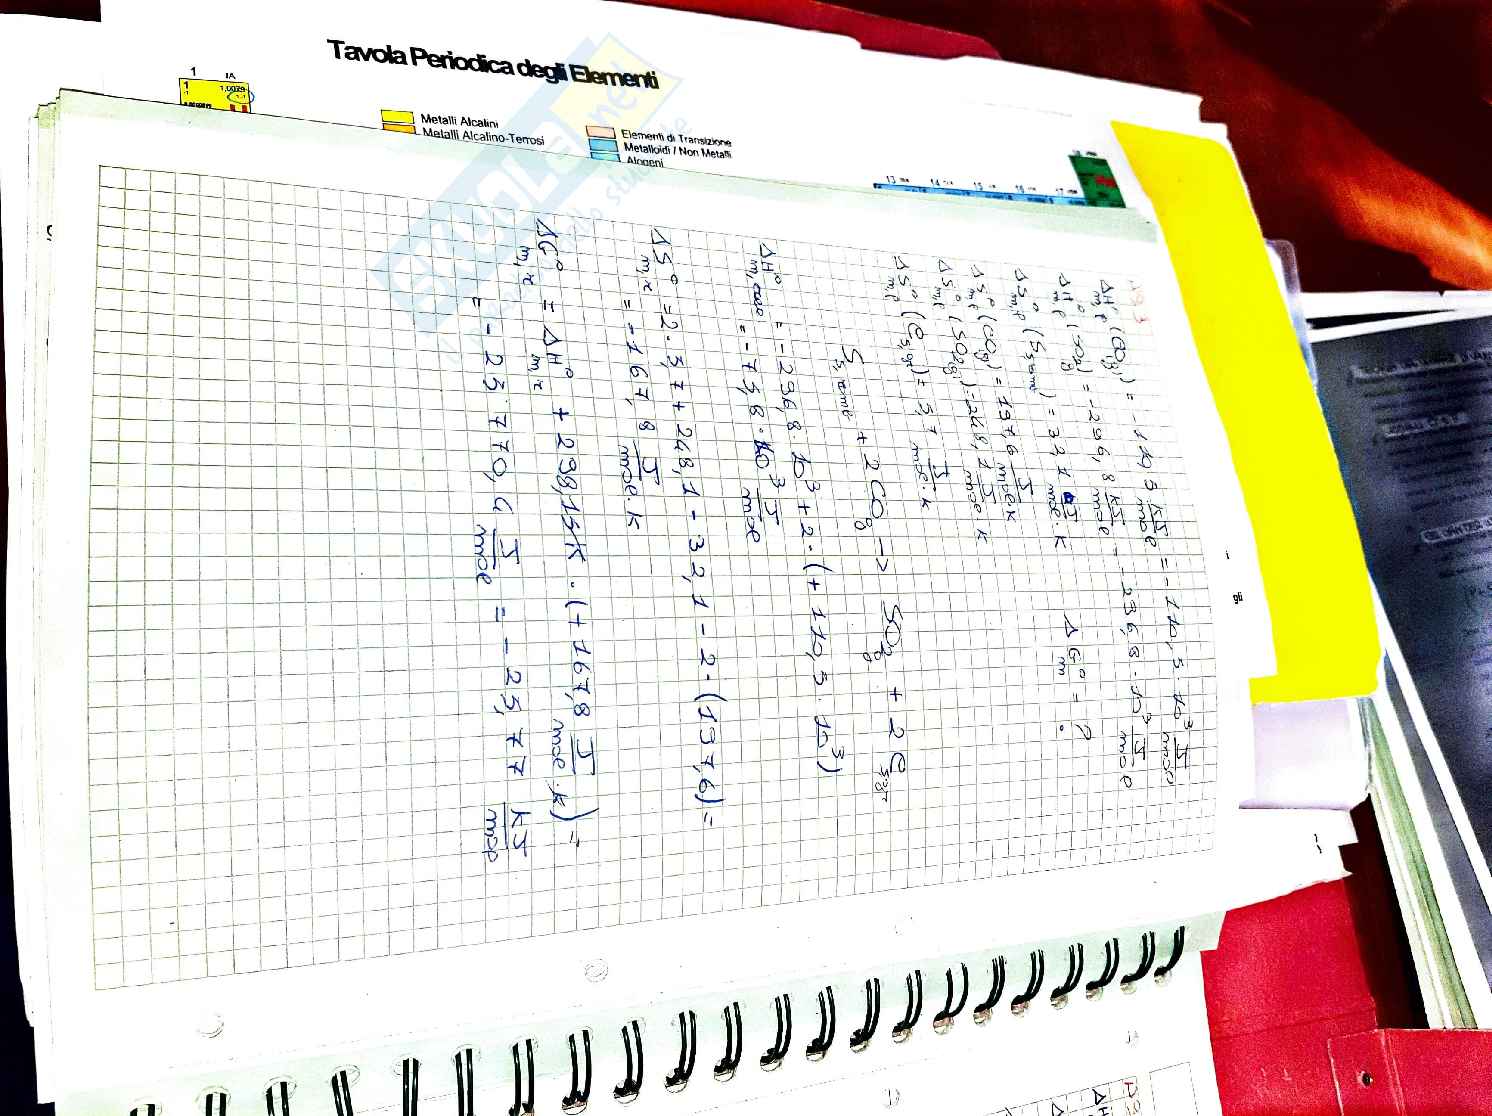 Tavola Periodica degli Elementi
1 IA
1 1,0079
Metalli Alcalini
Metalli Alcalino-Terrosi
Elementi di Transizione
Metalloidi / Non Metalli
Alogeni
13 14 15 16 17 18
SKUOLA.net
ΔH°m,f (CO g) = -110,5 kJ/mole = -110,5·10³ J/mole
ΔH°m,f (SO2 g) = -296,8 kJ/mole = -296,8·10³ J/mole
ΔS°m,f (S s, romb) = 32,1 J/mole·K ΔG°m = ?
ΔS°m,f (CO g) = 197,6 J/mole·K
ΔS°m,f (SO2 g) = 248,1 J/mole·K
ΔS°m,f (C s,gr) = 5,7 J/mole·K
S s, romb + 2CO g → SO2 g + 2C s,gr
= -296,8·10³ + 2·(+110,5·10³)
= -75,8·10³ J/mole
ΔS°m,r = 2·5,7 + 248,1 - 32,1 - 2·(197,6) =
= -167,8 J/mole·K
ΔG°m,r = ΔH°m,r + 298,15K·(+167,8 J/mole·K) =
= -25770,4 J/mole = -25,77 kJ/mole